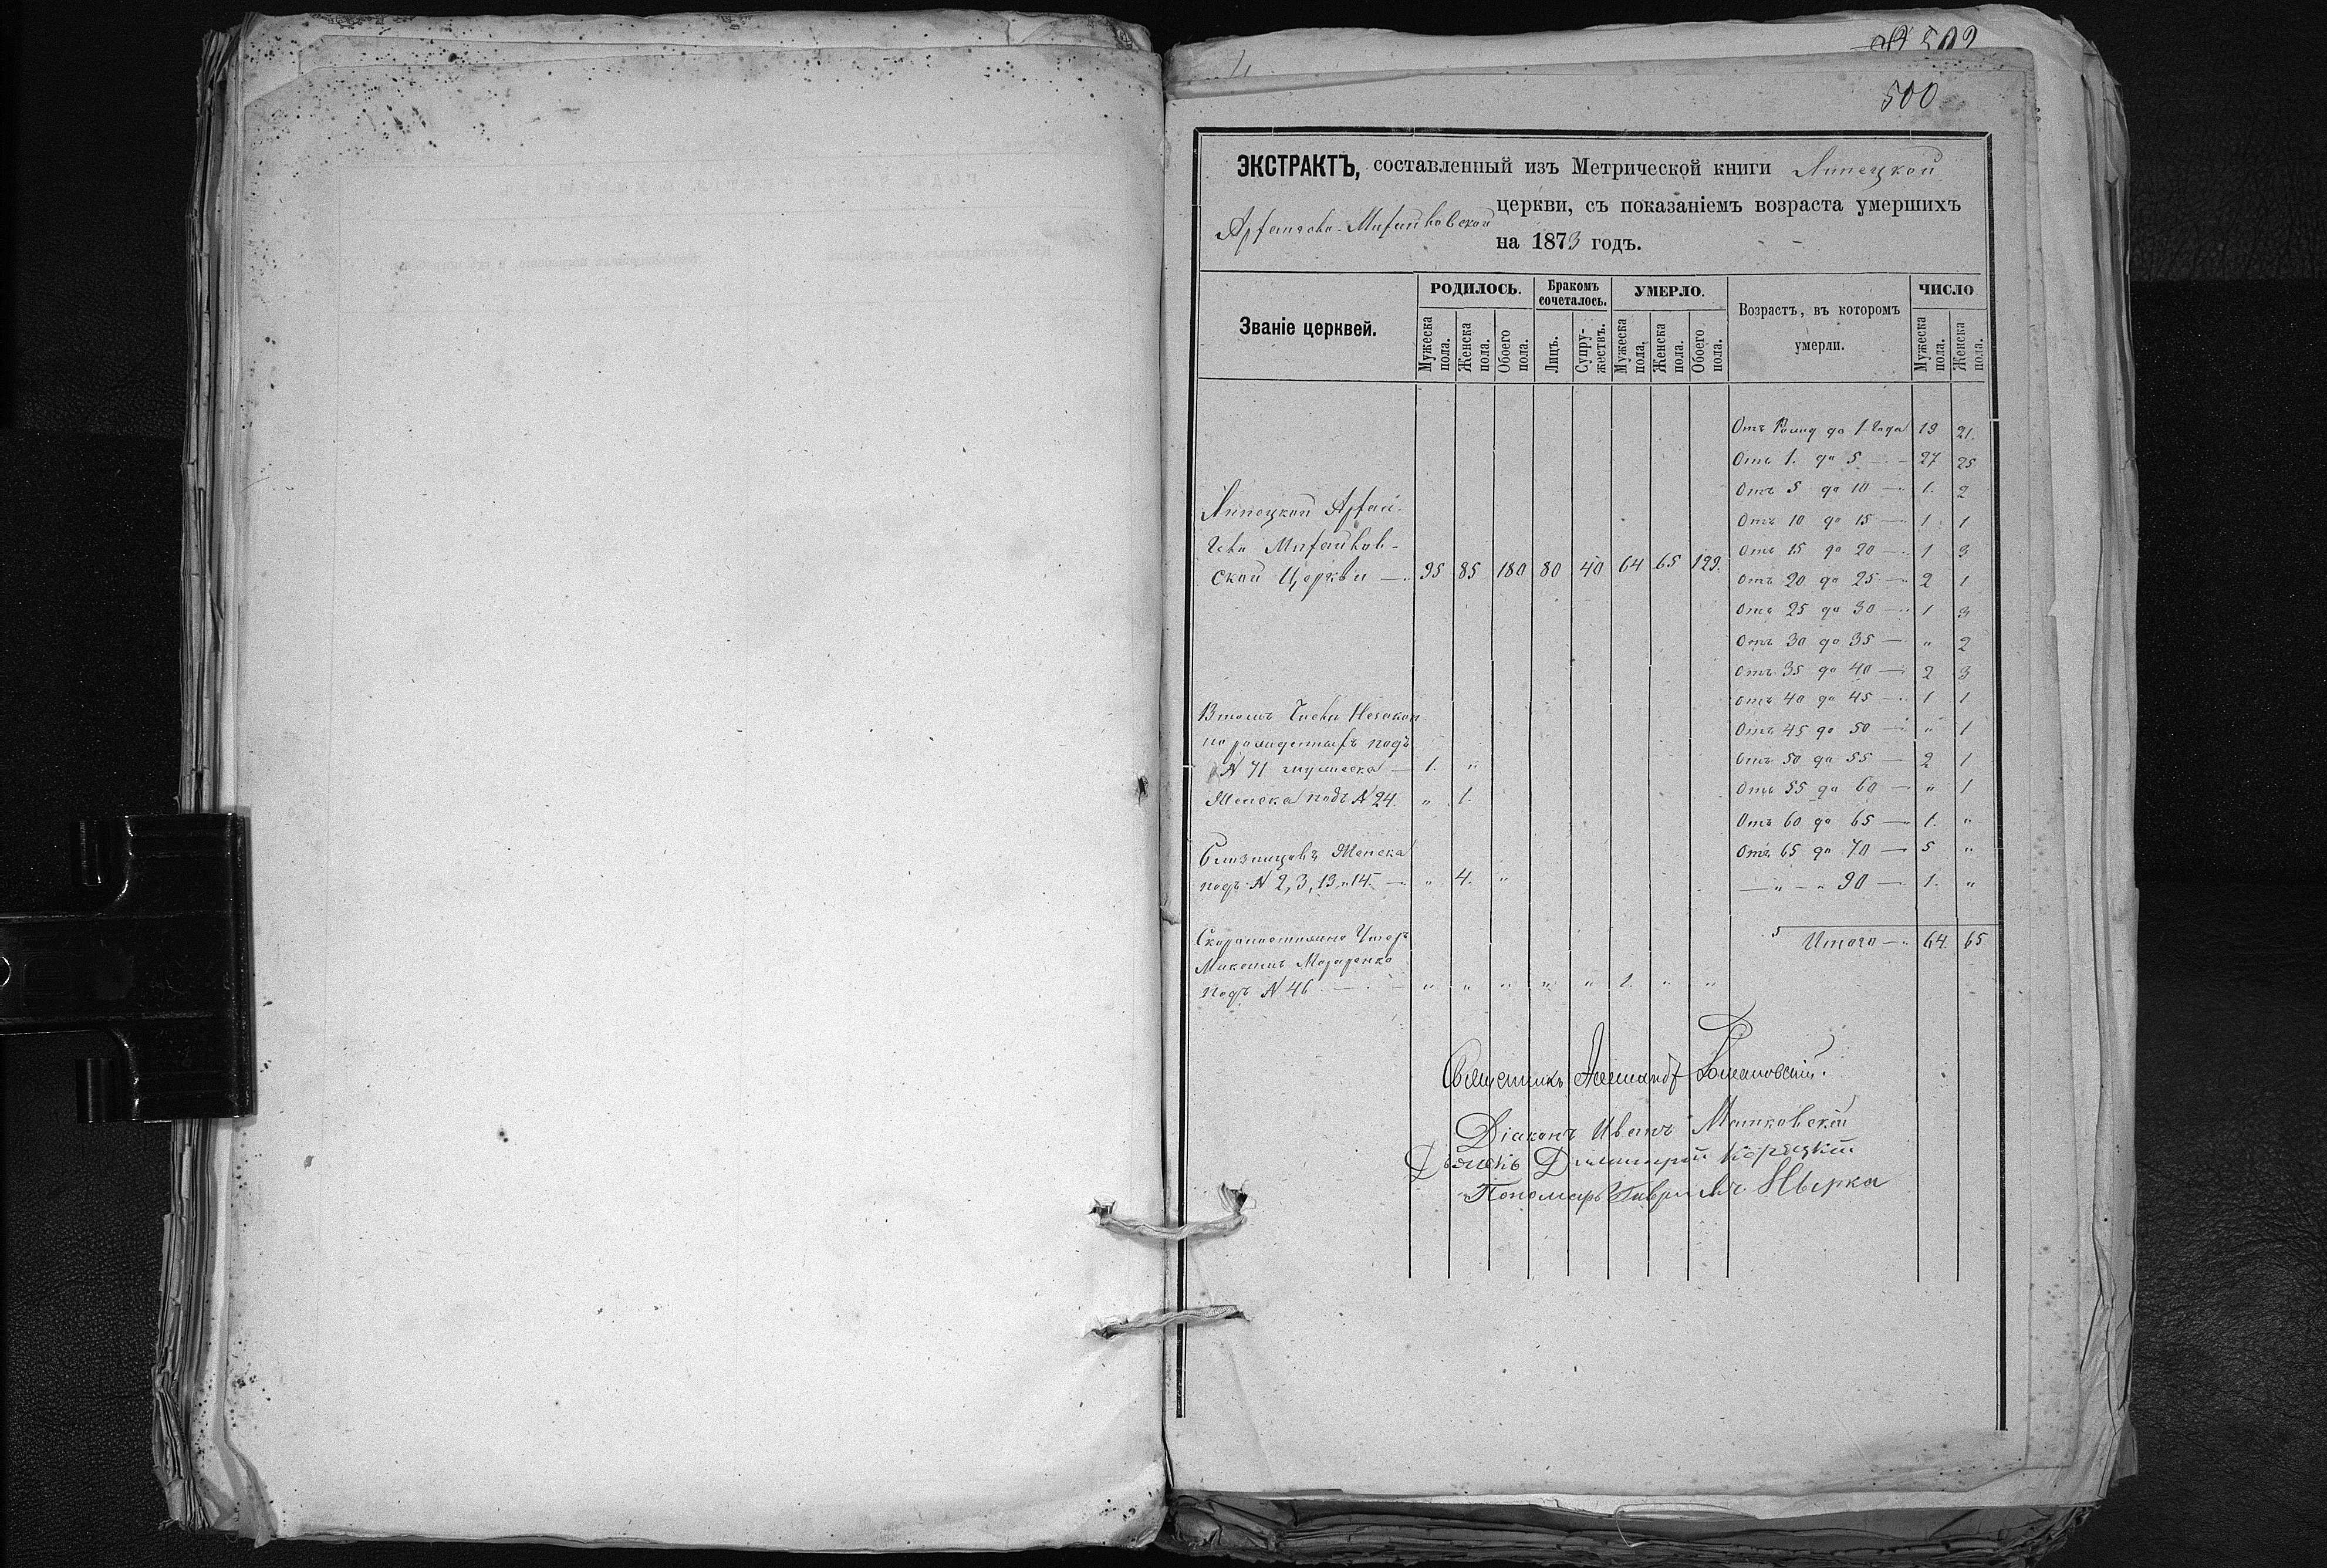 500
ЭКСТРАКТЪ, составленный изъ Метрической книги Липецкой
Архангело-Михайловской церкви, съ показаніемъ возраста умершихъ
на 1873 годъ.
Званіе церквей.
РОДИЛОСЬ.
Мужеска пола.
Женска пола.
Обоего пола.
Бракомъ сочеталось.
Лицъ.
Супружествъ.
УМЕРЛО.
Мужеска пола.
Женска пола.
Обоего пола.
Возрастъ, въ которомъ умерли.
ЧИСЛО
Мужеска пола.
Женска пола.
Липецкой Архан-
гело Михайлов-
ской Церкви — 95 85 180 80 40 64 65 129.
Въ томъ числѣ Незакон
но рожденныхъ подъ
№ 71 мужеска — 1. "
Женска подъ № 24. " 1.
Близнецовъ Женска
подъ № 2, 3, 13 и 14. — " 4. "
Скоропостижно Умеръ
подъ № 46 — " " " " " 1. " "
Отъ Рожд до 1 года 19 21.
Отъ 1. до 5 — 27 25
Отъ 5 до 10 — 1. 2
Отъ 10 до 15 — 1 1
Отъ 15 до 20 — 1 3
Отъ 20 до 25 — 2 1
Отъ 25 до 30 — 1 3
Отъ 30 до 35 — " 2
Отъ 35 до 40 — 2 3
Отъ 40 до 45 — 1 1
Отъ 45 до 50 — " 1
Отъ 50 до 55 — 2 1
Отъ 55 до 60 — " 1
Отъ 60 до 65 — 1. "
Отъ 65 до 70 — 5 "
— " — " 90 — 1. "
Итого — 64. 65
Священникъ Романовскій.
Діаконъ Иванъ
Дьячекъ Димитрій Корецкій
Пономарь Гавріилъ